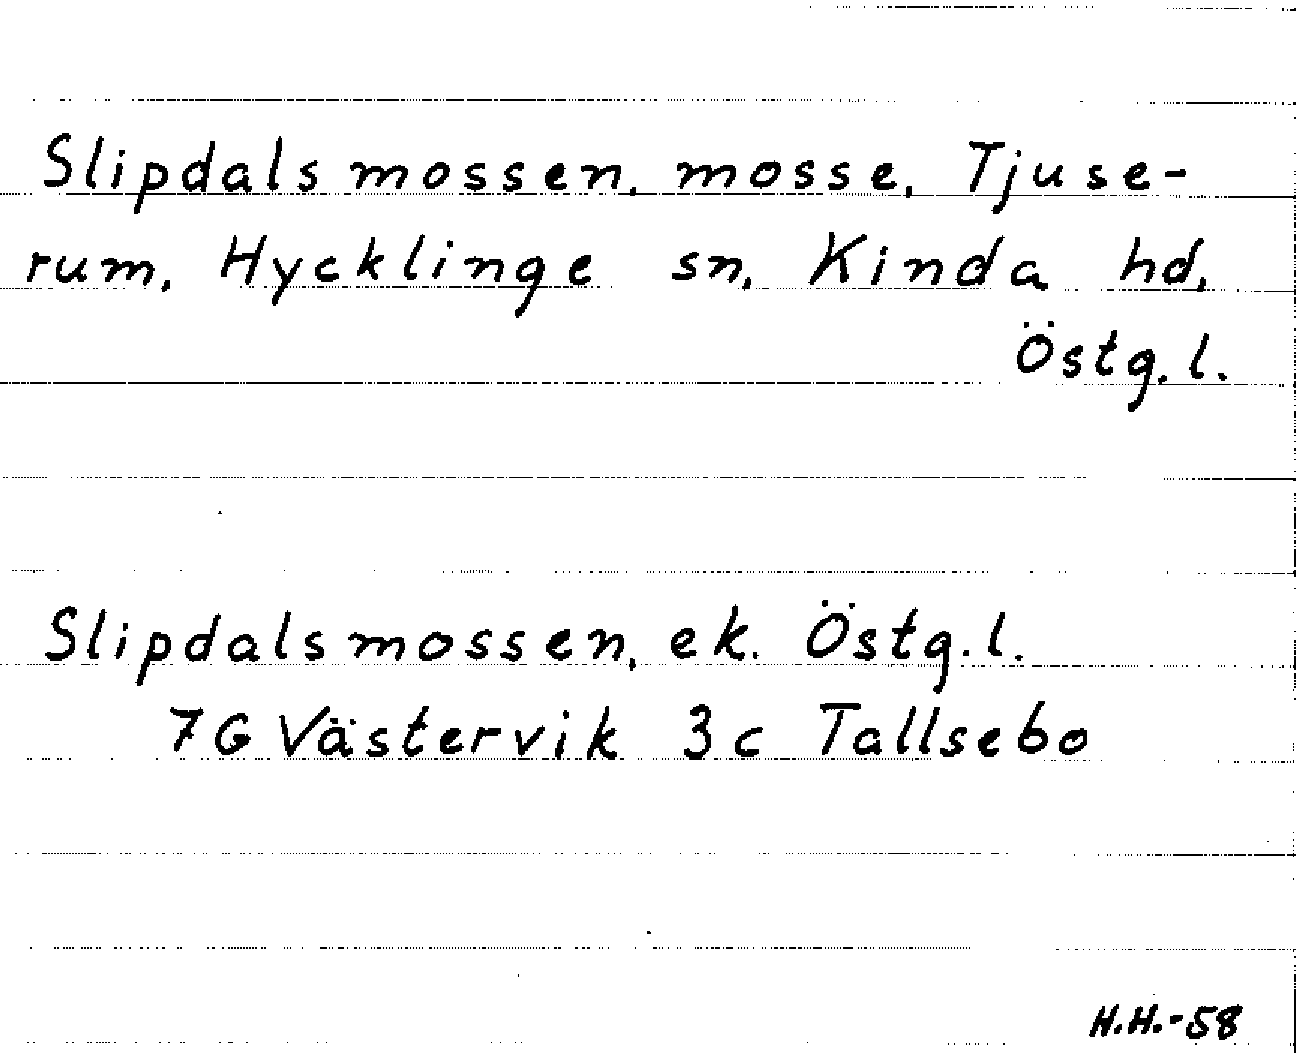 Slipdalsmossen, mosse, Tjuse-
rum, Hycklinge sn, Kinda hd,
Östg. l.
Slipdalsmossen, ek. Östg. l.
7G Västervik 3c Tallsebo
H.H.-58